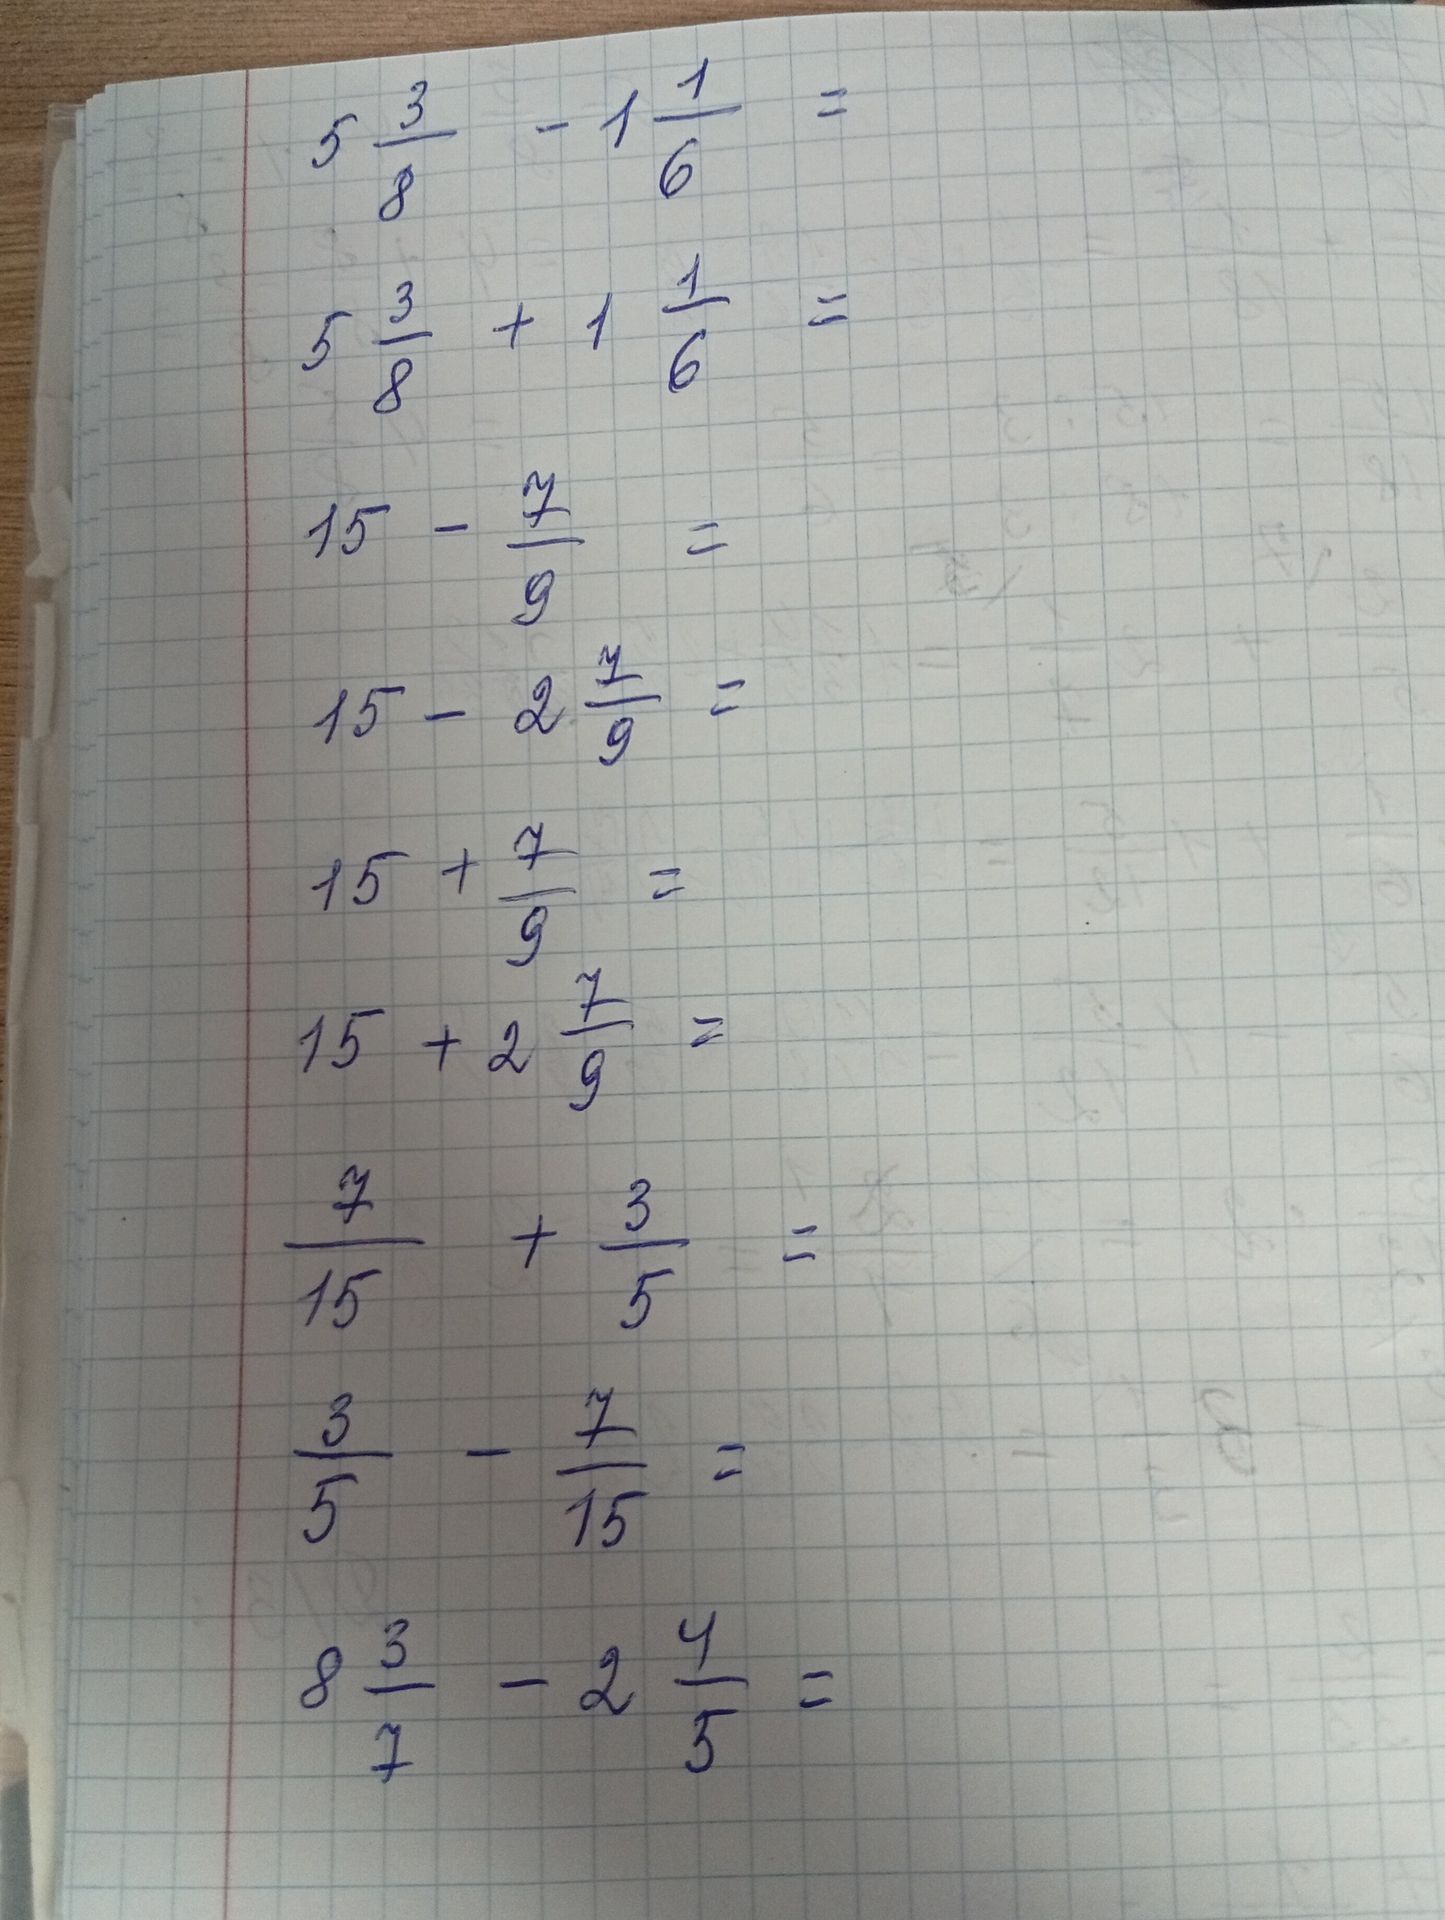 5 3/8 - 1 1/6 =
5 3/8 + 1 1/6 =
15 - 7/9 =
15 - 2 7/9 =
15 + 7/9 =
15 + 2 7/9 =
7/15 + 3/5 =
3/5 - 7/15 =
8 3/7 - 2 4/5 =